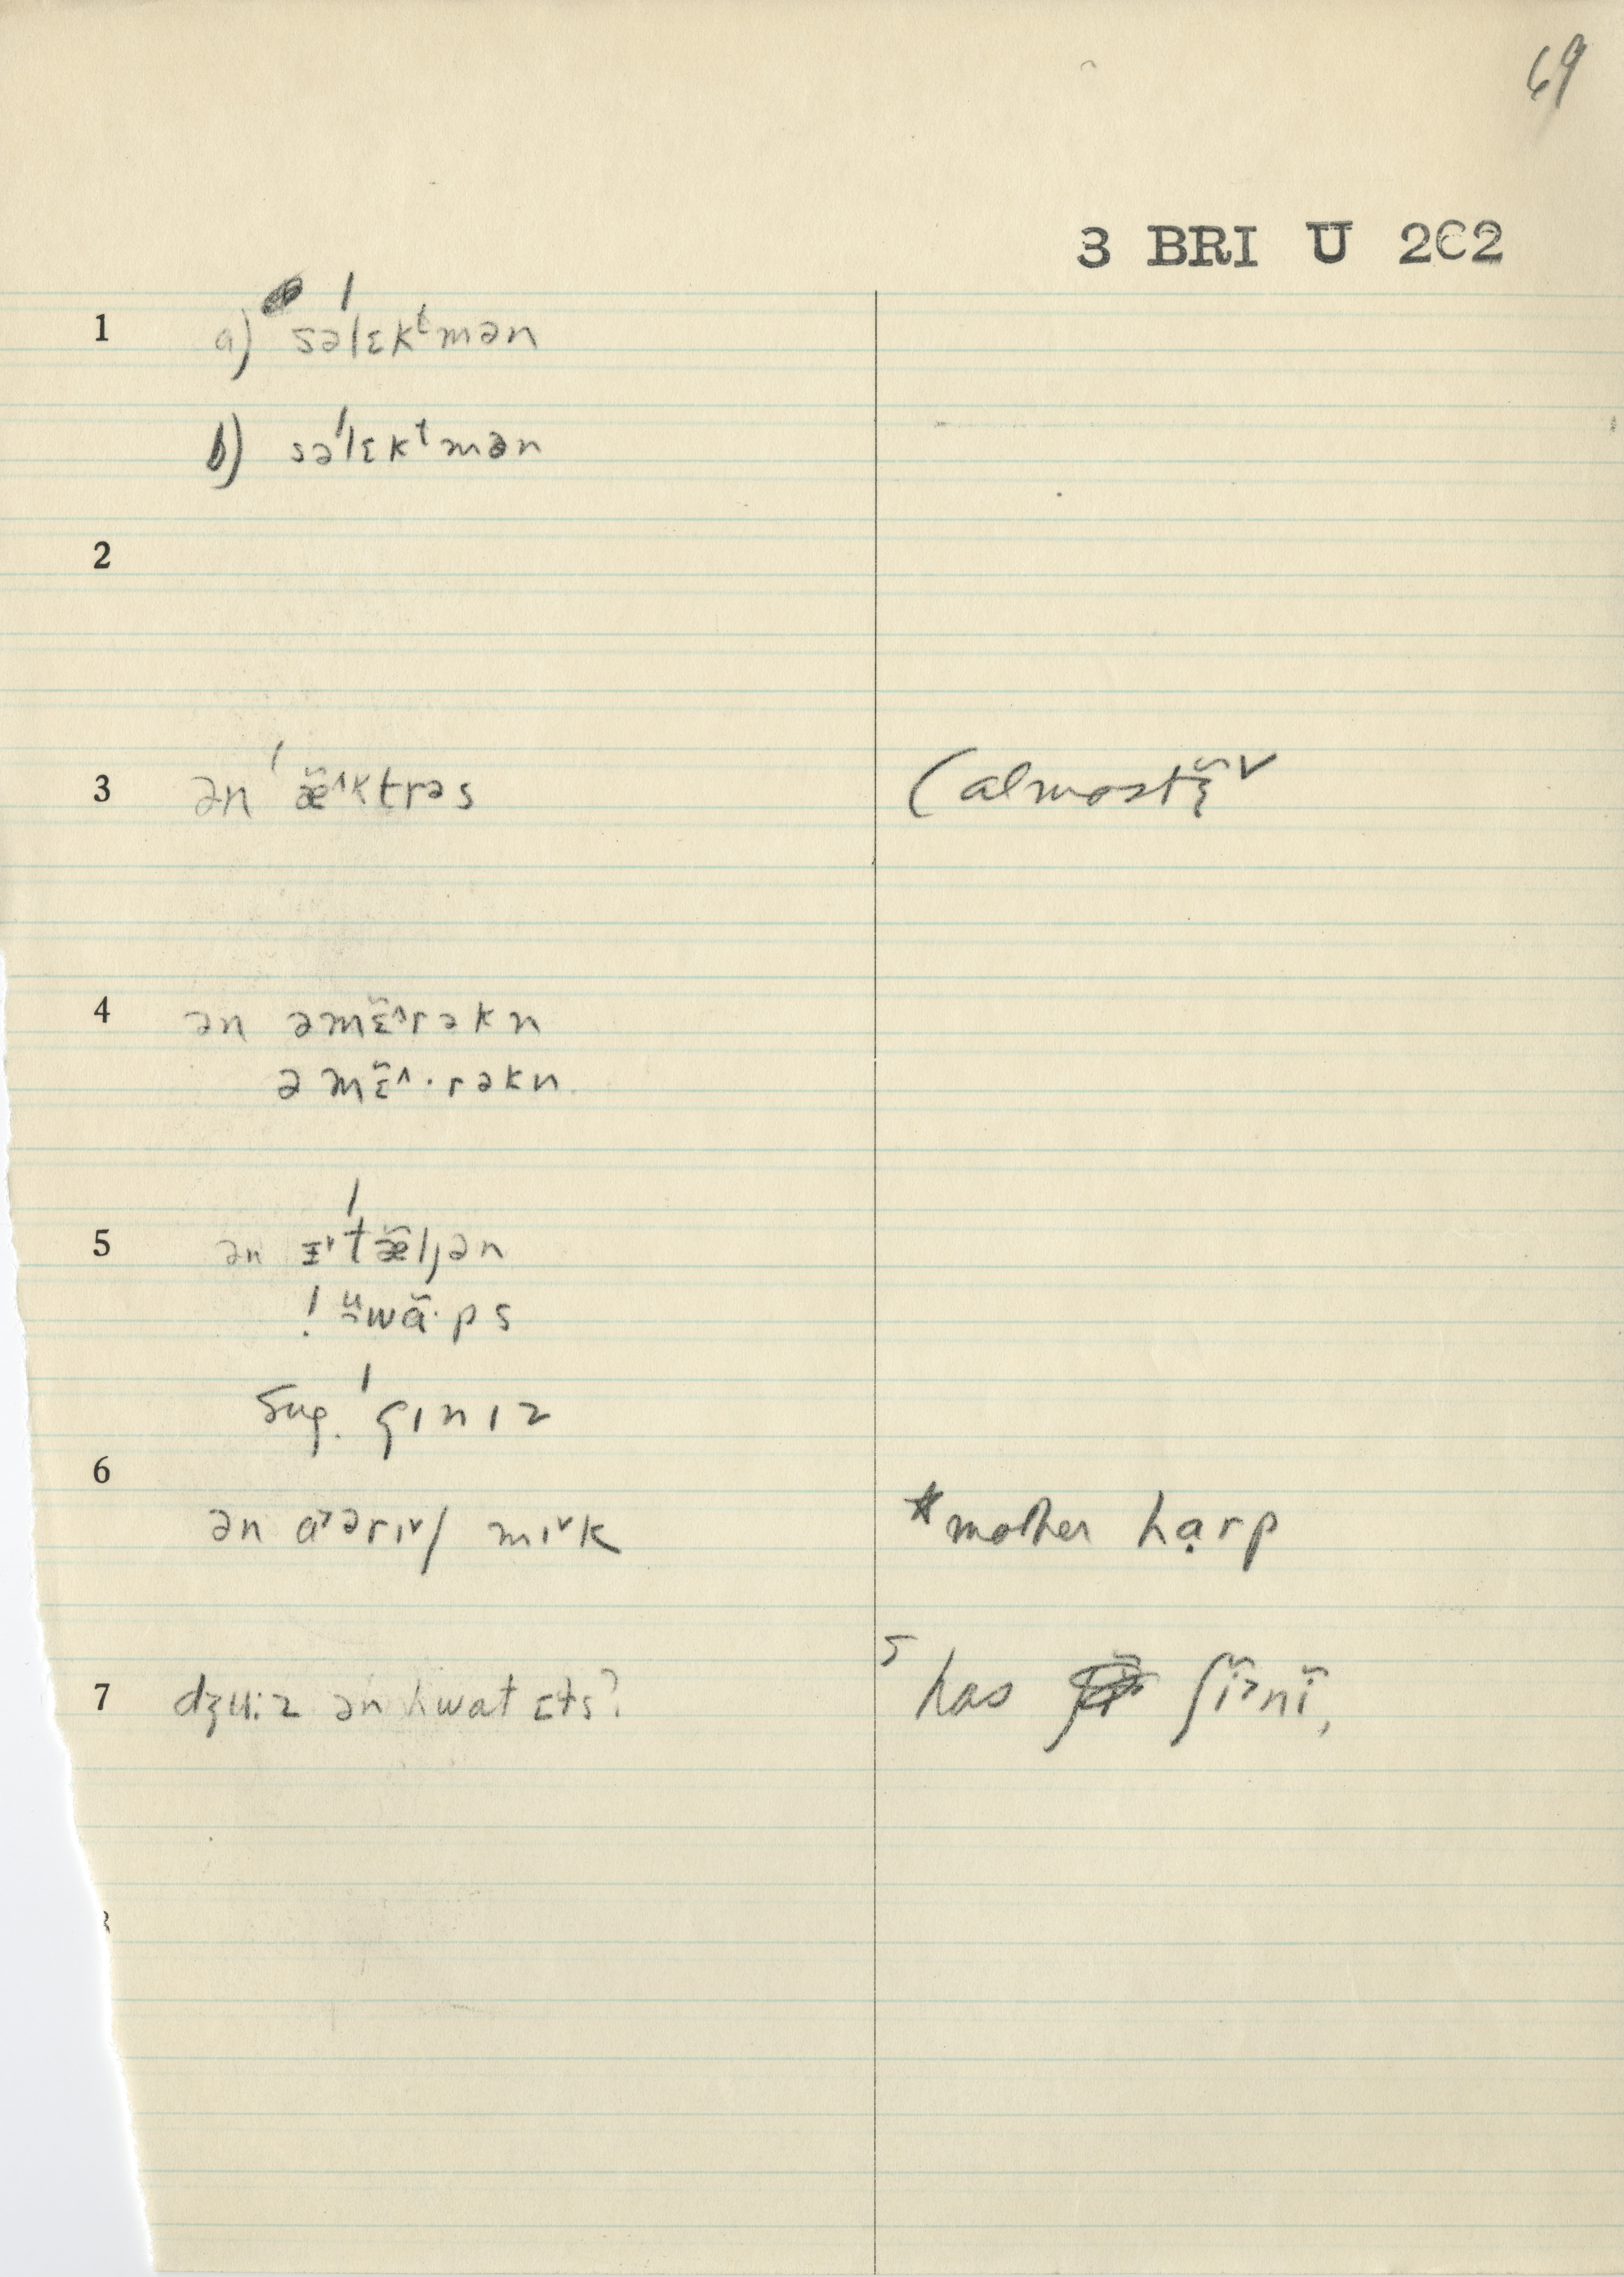 69
3 BRI U 2C2
1 a) səˈlɛkᵗmən
b) səˈlɛkᵗmən
2
3 ən ˈæ̆^ktrəs (almost ɛ̆ˇ
4 ən əmɛ̆^rəkn
əmɛ̆^·rəkn
5 ən ɪˇˈtæ̆ljən
! ᵘwɑ̆·ps
Sug. ˈgɪnɪz
6 ən aʾərɪˇʃ mɪˇk *mother hạrp
7 dʒu:z ən hwat ɛts? 5 has ʃĭʾnĭ,